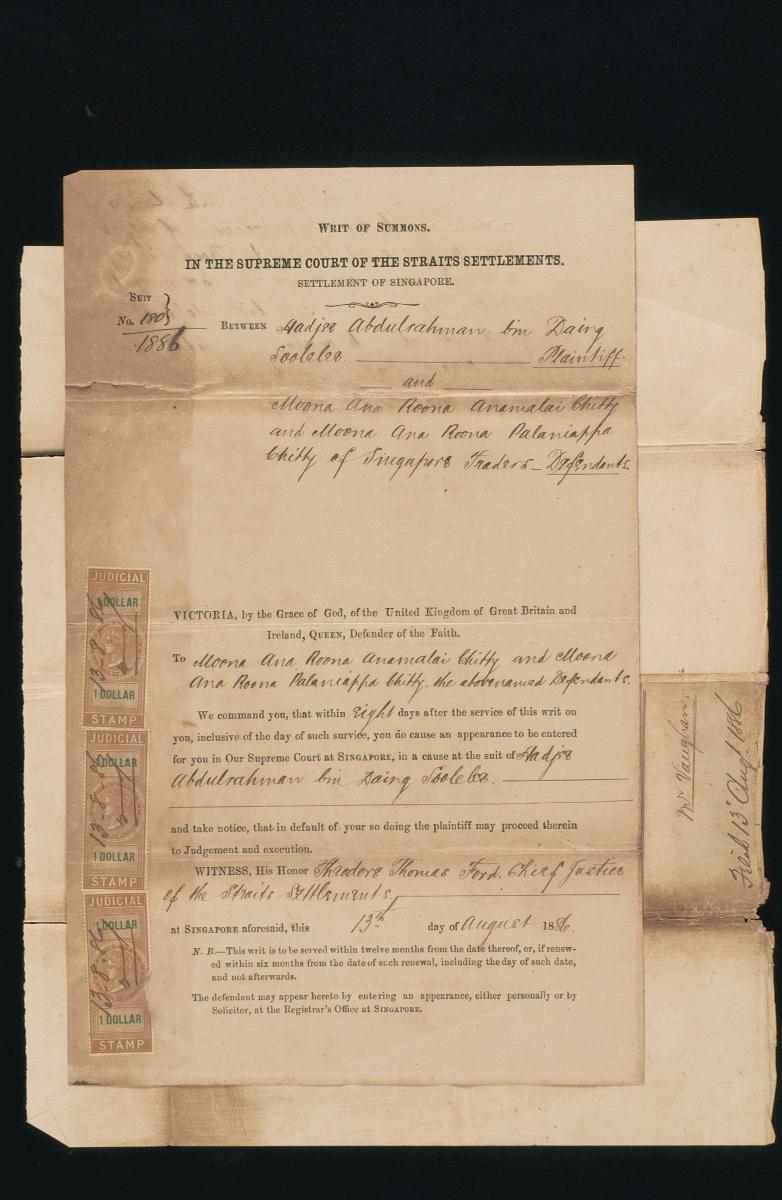 WRIT OF SUMMONS.
IN THE SUPREME COURT OF THE STRAITS SETTLEMENTS.
SETTLEMENT OF SINGAPORE.
SUIT
No. 180
1886
BETWEEN Hadjee Abdulrahman bin Daing
Plaintiff.
and
Moona Ana Roona Anamalai Chitty
and Moona Ana Roona Palaniappa
Chitty of Singapore Traders - Defendants.
VICTORIA, by the Grace of God, of the United Kingdom of Great Britain and
Ireland, QUEEN, Defender of the Faith.
To Moona Ana Roona Anamalai Chitty and Moona
Ana Roona Palaniappa Chitty the abovenamed Defendants.
We command you, that within Eight days after the service of this writ on
you, inclusive of the day of such survice, you do cause an appearance to be entered
for you in Our Supreme Court at SINGAPORE, in a cause at the suit of Hadjee
Abdulrahman bin Daing
and take notice, that in default of your so doing the plaintiff may proceed therein
to Judgement and execution.
WITNESS, His Honor Theodore Thomas Ford, Chief Justice
of the Straits Settlements
at SINGAPORE aforesaid, this 13th day of August 1886.
N. B.—This writ is to be served within twelve months from the date thereof, or, if renew-
ed within six months from the date of such renewal, including the day of such date,
and not afterwards.
The defendant may appear hereto by entering an appearance, either personally or by
Solicitor, at the Registrar's Office at SINGAPORE.
JUDICIAL
1 DOLLAR
13-8-86
1 DOLLAR
STAMP
JUDICIAL
1 DOLLAR
13-8-86
1 DOLLAR
STAMP
JUDICIAL
1 DOLLAR
13-8-86
1 DOLLAR
STAMP
Mr Vaughan.
Filed 13 Augt 1886